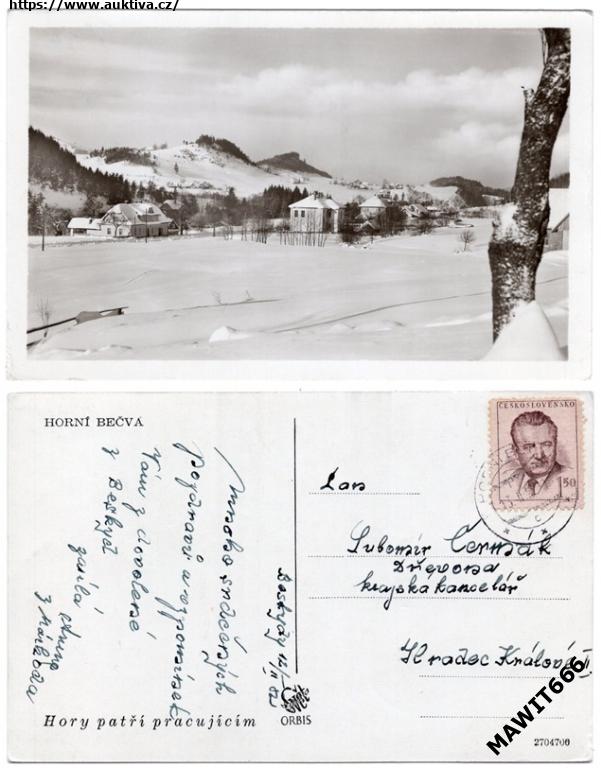 https://www.auktiva.cz/
HORNÍ BEČVA
Beskydy
mnoho srdečných
pozdravů a vzpomínek
Vám z dovolené
z Beskyd
zasílá
ČESKOSLOVENSKO
1.50
Pan
Lubomír Čermák
Dřevona
krajská kancelář
Hradec Králové II
Hory patří pracujícím
ORBIS
MAWIT666
2704700